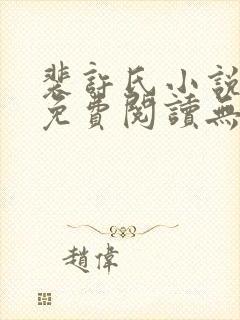 裴許氏小說
免費閱讀無
趙偉